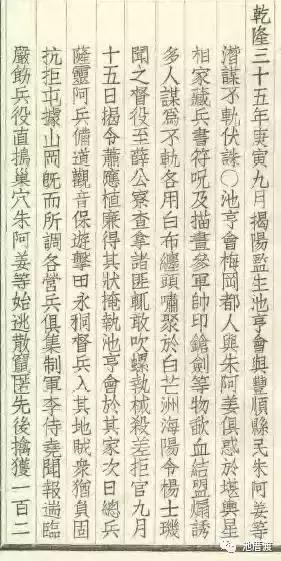 乾隆三十五年庚寅九月揭陽監生池亨會與豐順縣民朱阿姜等
潛謀不軌伏誅○池亨會梅岡都人與朱阿姜俱惑於堪輿星
相家藏兵書符呪及描畫參軍帥印鎗劍等物歃血結盟煽誘
多人謀為不軌各用白布纏頭嘯聚於白芒洲海陽令楊士璣
聞之督役至薛公寮查拿諸匪輒敢吹螺執械殺差拒官九月
十五日揭令蕭應植廉得其狀掩執池亨會於其家次日總兵
薩靈阿兵備道觀音保遊擊田永秱督兵入其地賊衆猶負固
抗拒屯據山岡旣而所調各營兵俱集制軍李侍堯聞報遄臨
嚴飭兵役直搗巢穴朱阿姜等始逃散竄匿先後擒獲一百二
池借渡